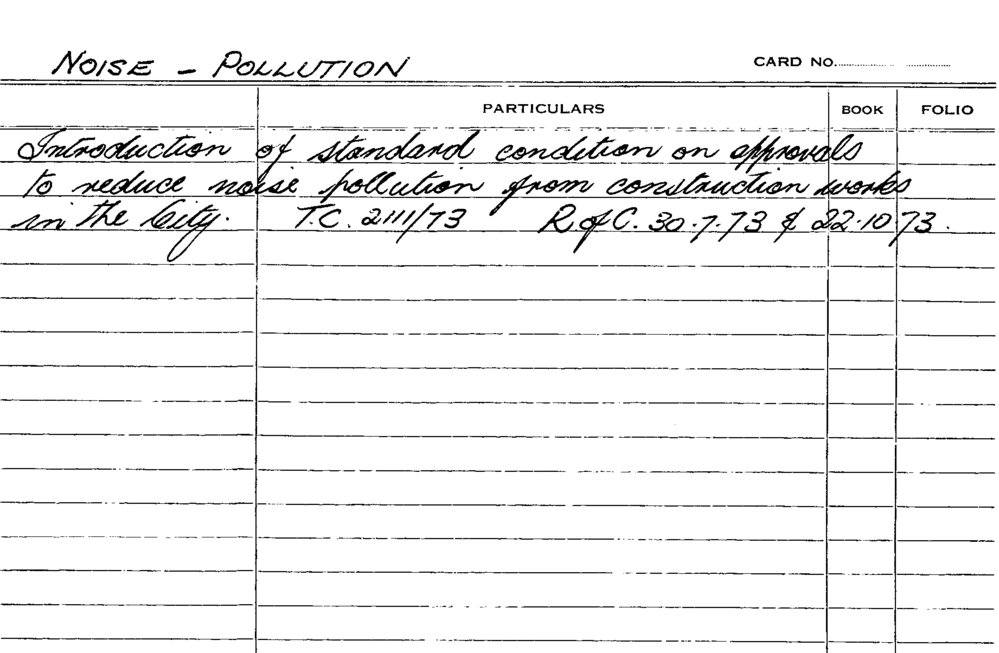 NOISE - POLLUTION CARD NO.
PARTICULARS BOOK FOLIO
Introduction of standard condition on approvals
to reduce noise pollution from construction works
in the City. T.C. 2111/73 R of C. 30.7.73 & 22.10.73.